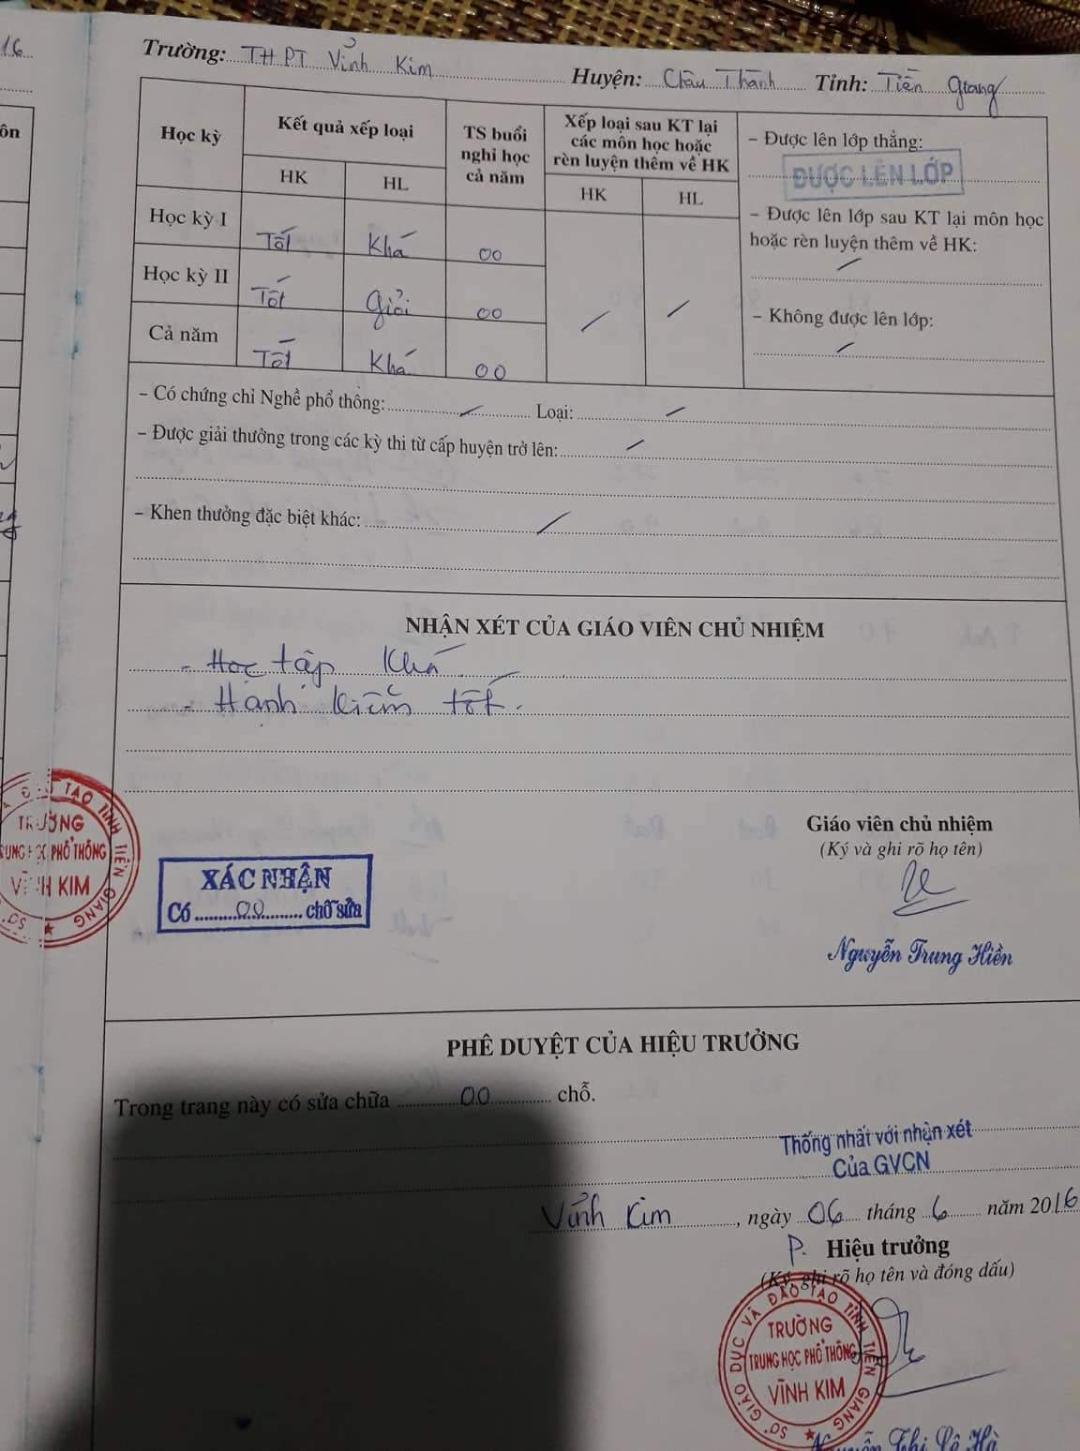 16
Trường: THPT Vĩnh Kim Huyện: Châu Thành Tỉnh: Tiền Giang
ôn
Học kỳ
Kết quả xếp loại
TS buổi nghỉ học cả năm
Xếp loại sau KT lại các môn học hoặc rèn luyện thêm về HK
HK HL HK HL
Học kỳ I Tốt Khá 00
Học kỳ II Tốt Giỏi 00
Cả năm Tốt Khá 00 / /
– Được lên lớp thẳng:
ĐƯỢC LÊN LỚP
– Được lên lớp sau KT lại môn học
hoặc rèn luyện thêm về HK:
/
– Không được lên lớp:
/
– Có chứng chỉ Nghề phổ thông: / Loại: /
– Được giải thưởng trong các kỳ thi từ cấp huyện trở lên: /
– Khen thưởng đặc biệt khác: /
NHẬN XÉT CỦA GIÁO VIÊN CHỦ NHIỆM
- Học tập Khá
- Hạnh kiểm tốt.
TRƯỜNG
PHỔ THÔNG
KIM
TẠO TỈNH TIỀN GIANG
XÁC NHẬN
Có 00 chỗ sửa
Giáo viên chủ nhiệm
(Ký và ghi rõ họ tên)
Nguyễn Trung Hiền
PHÊ DUYỆT CỦA HIỆU TRƯỞNG
Trong trang này có sửa chữa 00 chỗ.
Thống nhất với nhận xét
Của GVCN
Vĩnh Kim, ngày 06 tháng 6 năm 2016
P. Hiệu trưởng
(Ký, ghi rõ họ tên và đóng dấu)
SỞ GIÁO DỤC VÀ ĐÀO TẠO TỈNH TIỀN GIANG
TRƯỜNG
TRUNG HỌC PHỔ THÔNG
VĨNH KIM